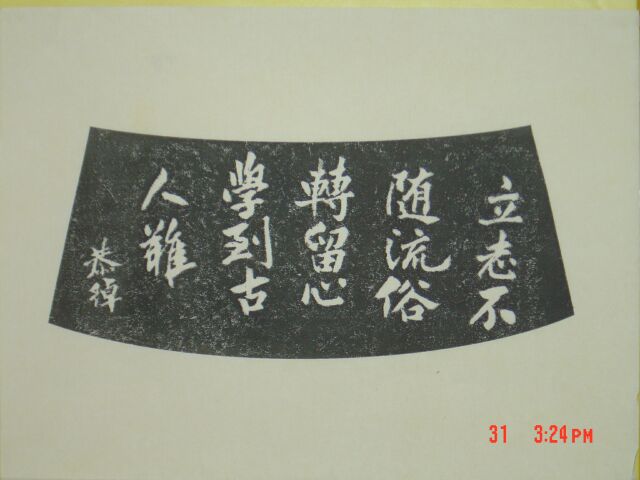 立志不
随流俗
轉留心
學到古
人難
恭綽
31 3:24PM